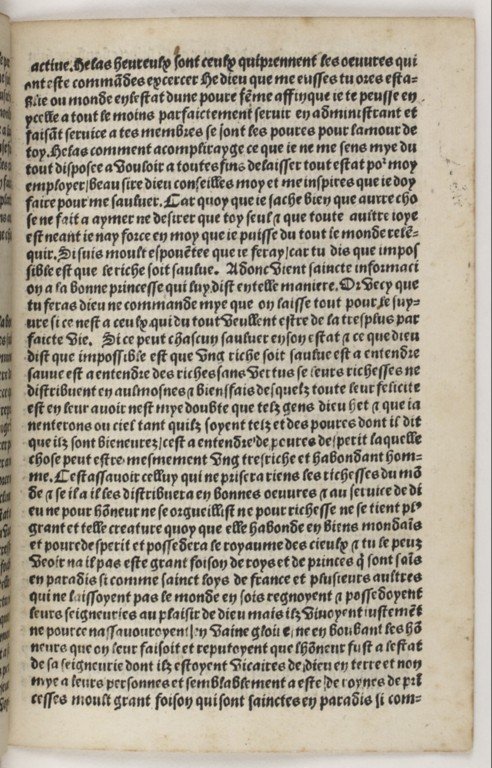 actiue. Helas heureulx sont ceulx qui prennent les oeuures qui
ont este commãdees excercer He dieu que me eusses tu ores esta-
blie ou monde en lestat dune poure fẽme affin que ie te peusse en
ycelle a tout le moins parfaictement seruir en administrant et
faisãt seruice a tes membres se sont les poures pour lamour de
toy. Helas comment acomplirayge ce que ie ne me sens mye du
tout disposee a vouloir a toutes fins delaisser tout estat por moy
employer/beau sire dieu conseilles moy et me inspires que ie doy
faire pour me sauluer. Car quoy que ie sache bien que autre cho
se ne fait a aymer ne desirer que toy seul ⁊ que toute aultre ioye
est neant ie nay force en moy que ie puisse du tout le monde relẽ-
quir. Si suis moult espouẽtee que ie feray/car tu dis que impos
sible est que le riche soit saulue. Adonc vient saincte informaci
on a la bonne princesse qui luy dist en telle maniere. Or vecy que
tu feras dieu ne commande mye que on laisse tout pour le suy-
ure si ce nest a ceulx qui du tout veullent estre de la tresplus par
faicte vie. Si ce peut chascun sauluer en son estat ⁊ ce que dieu
dist que impossible est que vng riche soit saulue est a entendre
sauue est a entendre des riches sans vertus se leurs richesses ne
distribuent en aulmosnes ⁊ biensfais desquelz toute leur felicite
est en leur auoir nest mye doubte que telz gens dieu het ⁊ que ia
nenterons ou ciel tant quilz soyent telz et des poures dont il dit
que ilz sont bieneurez/cest a entendre de poures desperit laquelle
chose peut estre mesmement vng tresriche et habondant hom-
me. Cestassauoir celluy qui ne prisera riens les richesses du mõ
de ⁊ se il a il les distribuera en bonnes oeuures ⁊ au seruice de di
eu ne pour hõneur ne se orgueillist ne pour richesse ne se tient pl9
grant et telle creature quoy que elle habonde en biens mondaĩs
et poure desperit et possedera le royaume des cieulx ⁊ tu le peuz
veoir na il pas este grant foison de roys et de princes q̃ sont saĩs
en paradis si comme sainct loys de france et plusieurs aultres
qui ne laissoyent pas le monde en sois regnoyent ⁊ possedoyent
leurs seigneuries au plaisir de dieu mais ilz viuoyent iustemẽt
ne pource nassauouroyent en vaine gloire ne en boubant les hõ
neurs que on leur faisoit et reputoyent que lhõneur fust a lestat
de sa seigneurie dont ilz estoyent vicaires de dieu en terre et non
mye a leurs personnes et semblablement a este de roynes de prĩ
cesses moult grant foison qui sont sainctes en paradis si com-